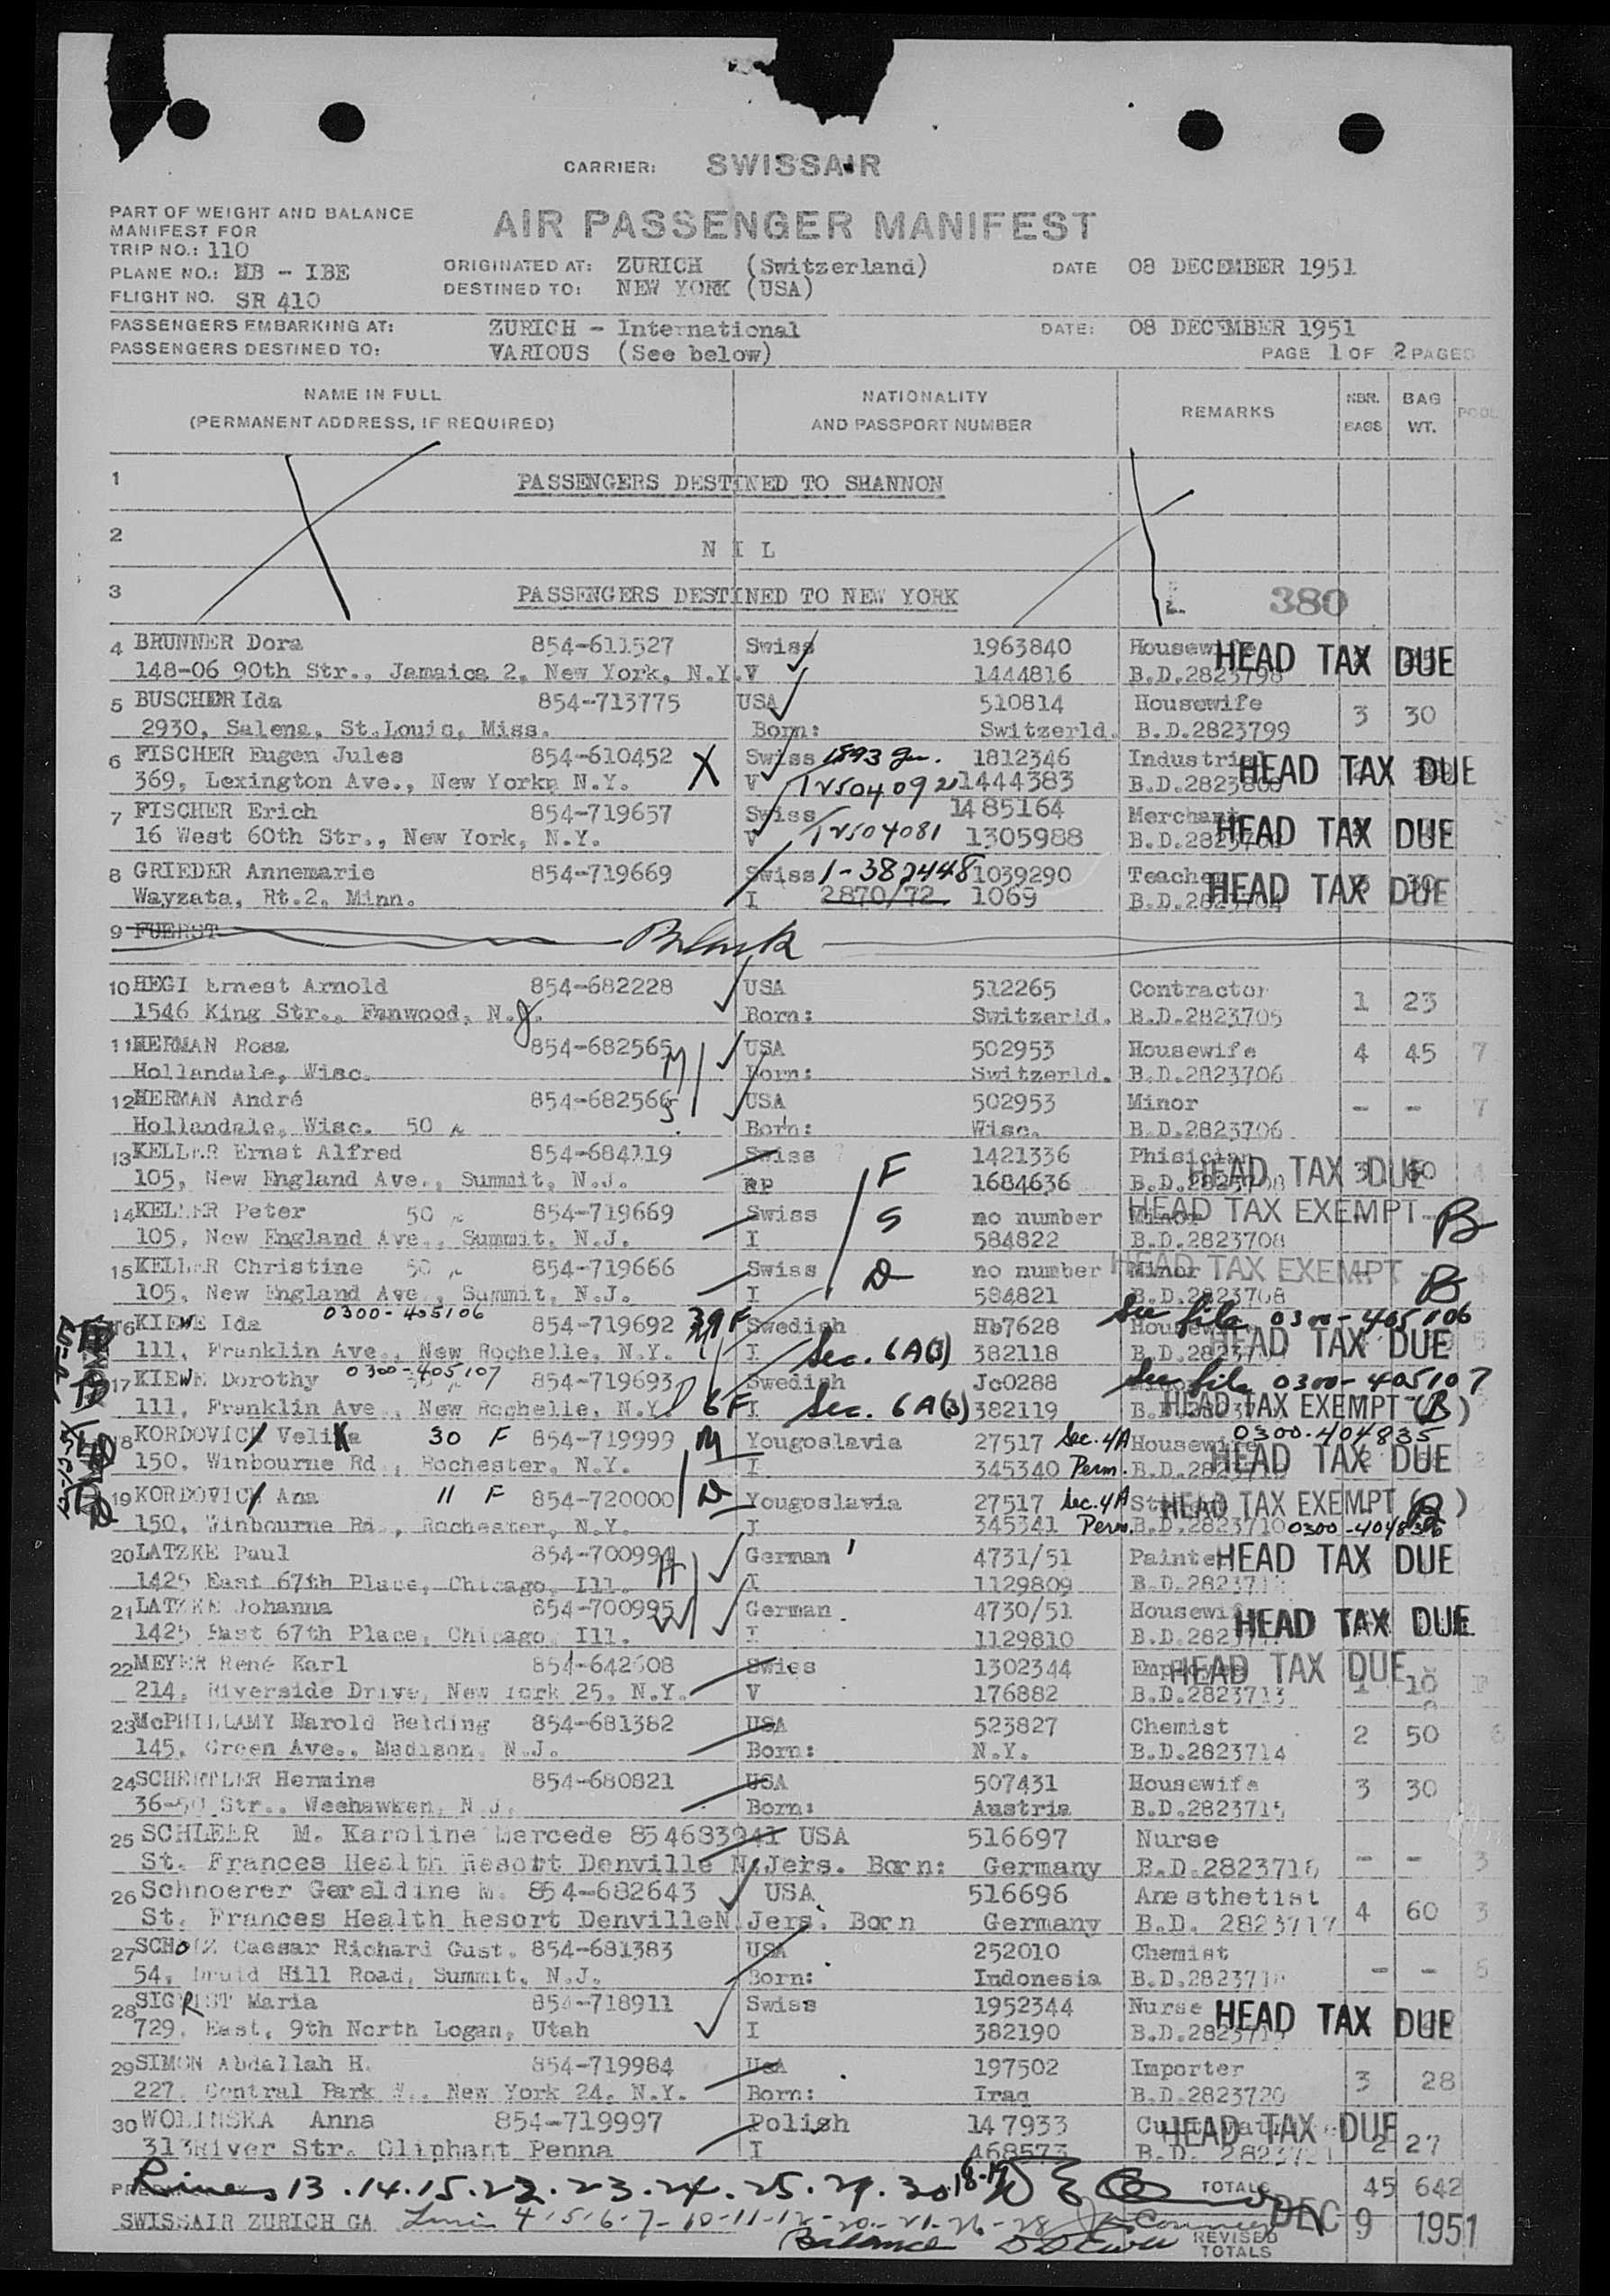 CARRIER: SWISSAIR
PART OF WEIGHT AND BALANCE
MANIFEST FOR
TRIP NO.: 110
PLANE NO.: HB - IBE
FLIGHT NO. SR 410
AIR PASSENGER MANIFEST
ORIGINATED AT: ZURICH (Switzerland) DATE 08 DECEMBER 1951
DESTINED TO: NEW YORK (USA)
PASSENGERS EMBARKING AT: ZURICH - International DATE: 08 DECEMBER 1951
PASSENGERS DESTINED TO: VARIOUS (See below) PAGE 1 OF 2 PAGES
NAME IN FULL NATIONALITY REMARKS NBR. BAG POOL
(PERMANENT ADDRESS, IF REQUIRED) AND PASSPORT NUMBER BAGS WT.
1 PASSENGERS DESTINED TO SHANNON
2 N I L
3 PASSENGERS DESTINED TO NEW YORK 380
4 BRUNNER Dora 854-611527 Swiss 1963840 Housewife HEAD TAX DUE
148-06 90th Str., Jamaica 2, New York, N.Y. V 1444816 B.D.2823798
5 BUSCHOR Ida 854-713775 USA 510814 Housewife 3 30
2930, Salena, St.Louis, Miss. Born: Switzerld. B.D.2823799
6 FISCHER Eugen Jules 854-610452 X Swiss 1893 1812346 Industrial HEAD TAX DUE
369, Lexington Ave., New York, N.Y. V 1250409 1444383 B.D.2823800
7 FISCHER Erich 854-719657 Swiss 1485164 Merchant HEAD TAX DUE
16 West 60th Str., New York, N.Y. V 1305988
8 GRIEDER Annemarie 854-719669 Swiss 1-382448 1039290 Teacher HEAD TAX DUE
Wayzata, Rt.2, Minn. I 2870/72 1069
9 FUERST Blank
10 HEGI Ernest Arnold 854-682228 USA 512265 Contractor 1 23
1546 King Str., Fanwood, N.J. Born: Switzerld. B.D.2823705
11 HERMAN Rosa 854-682565 M USA 502953 Housewife 4 45 7
Hollandale, Wisc. Born: Switzerld. B.D.2823706
12 HERMAN André 854-682566 S USA 502953 Minor - - 7
Hollandale, Wisc. 50 Born: Wisc. B.D.2823706
13 KELLER Ernst Alfred 854-684119 Swiss F 1421336 Phisician HEAD TAX DUE
105, New England Ave., Summit, N.J. RP 1684636
14 KELLER Peter 50 854-719669 Swiss S no number Minor HEAD TAX EXEMPT B
105, New England Ave., Summit, N.J. I 584822 B.D.2823708
15 KELLER Christine 50 854-719666 Swiss D no number Minor HEAD TAX EXEMPT B
105, New England Ave., Summit, N.J. I 584821 B.D.2823708
16 KIEWE Ida 0300-405106 854-719692 39 F Swedish Hb7628 See file 0300-405106
111, Franklin Ave., New Rochelle, N.Y. I Sec. 6A(3) 382118 HEAD TAX DUE
17 KIEWE Dorothy 0300-405107 854-719693 D Swedish Jc0288 See file 0300-405107
111, Franklin Ave., New Rochelle, N.Y. 6F I Sec. 6A(3) 382119 HEAD TAX EXEMPT (B)
18 KORDOVICH Velika 30 F 854-719999 M Yougoslavia 27517 Sec. 4A Housewife 0300-404835
150, Winbourne Rd., Rochester, N.Y. I 345340 Perm. HEAD TAX DUE
19 KORDOVICH Ana 11 F 854-720000 D Yougoslavia 27517 Sec. 4A HEAD TAX EXEMPT (B)
150, Winbourne Rd., Rochester, N.Y. I 345341 Perm. B.D.2823710 0300-404836
20 LATZKE Paul 854-700994 H German 4731/51 Painter HEAD TAX DUE
1425 East 67th Place, Chicago, Ill. I 1129809
21 LATZKE Johanna 854-700995 W German 4730/51 Housewife HEAD TAX DUE
1425 East 67th Place, Chicago Ill. I 1129810
22 MEYER René Karl 854-642608 Swiss 1302344 Employee HEAD TAX DUE
214, Riverside Drive, New York 25, N.Y. V 176882 B.D.2823713 1 10
23 McPHILLAMY Harold Belding 854-681382 USA 523827 Chemist 2 50 6
145, Green Ave., Madison, N.J. Born: N.Y. B.D.2823714
24 SCHERTLER Hermine 854-680821 USA 507431 Housewife 3 30
36-50 Str., Weehawken, N.J. Born: Austria B.D.2823715
25 SCHLEER M. Karoline Mercede 854683941 USA 516697 Nurse - - 3
St. Frances Health Resort Denville N.Jers. Born: Germany B.D.2823716
26 Schnoerer Geraldine M. 854-682643 USA 516696 Anesthetist 4 60 3
St. Frances Health Resort Denville N.Jers. Born Germany B.D. 2823717
27 SCHOTZ Caesar Richard Gust. 854-681383 USA 252010 Chemist - - 6
54, Druid Hill Road, Summit, N.J. Born: Indonesia B.D.2823718
28 SIGRIST Maria 854-718911 Swiss 1952344 Nurse HEAD TAX DUE
729, East, 9th North Logan, Utah I 382190
29 SIMON Abdallah H. 854-719984 USA 197502 Importer 3 28
227, Central Park W., New York 24, N.Y. Born: Iraq B.D.2823720
30 WOLINSKA Anna 854-719997 Polish 147933 HEAD TAX DUE
313 River Str. Oliphant Penna I 468573 2 27
13.14.15.22.23.24.25.29.30 18-19 TOTALS 45 642
SWISSAIR ZURICH GA 4-5-6-7-10-11-12-20-21-26-28 DEC 9 1951
Balance REVISED
TOTALS